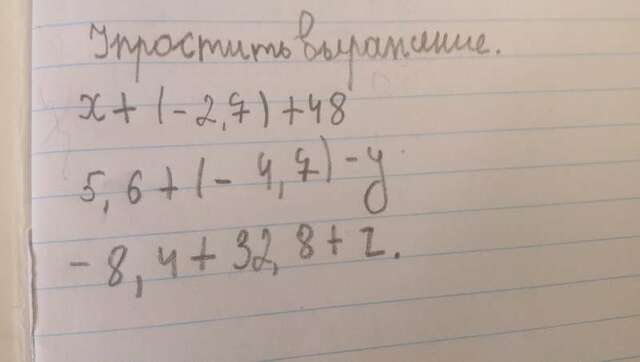 Упростить выражение.
x + (-2,7) + 48
5,6 + (- 4,7) - y
- 8,4 + 32,8 + z.